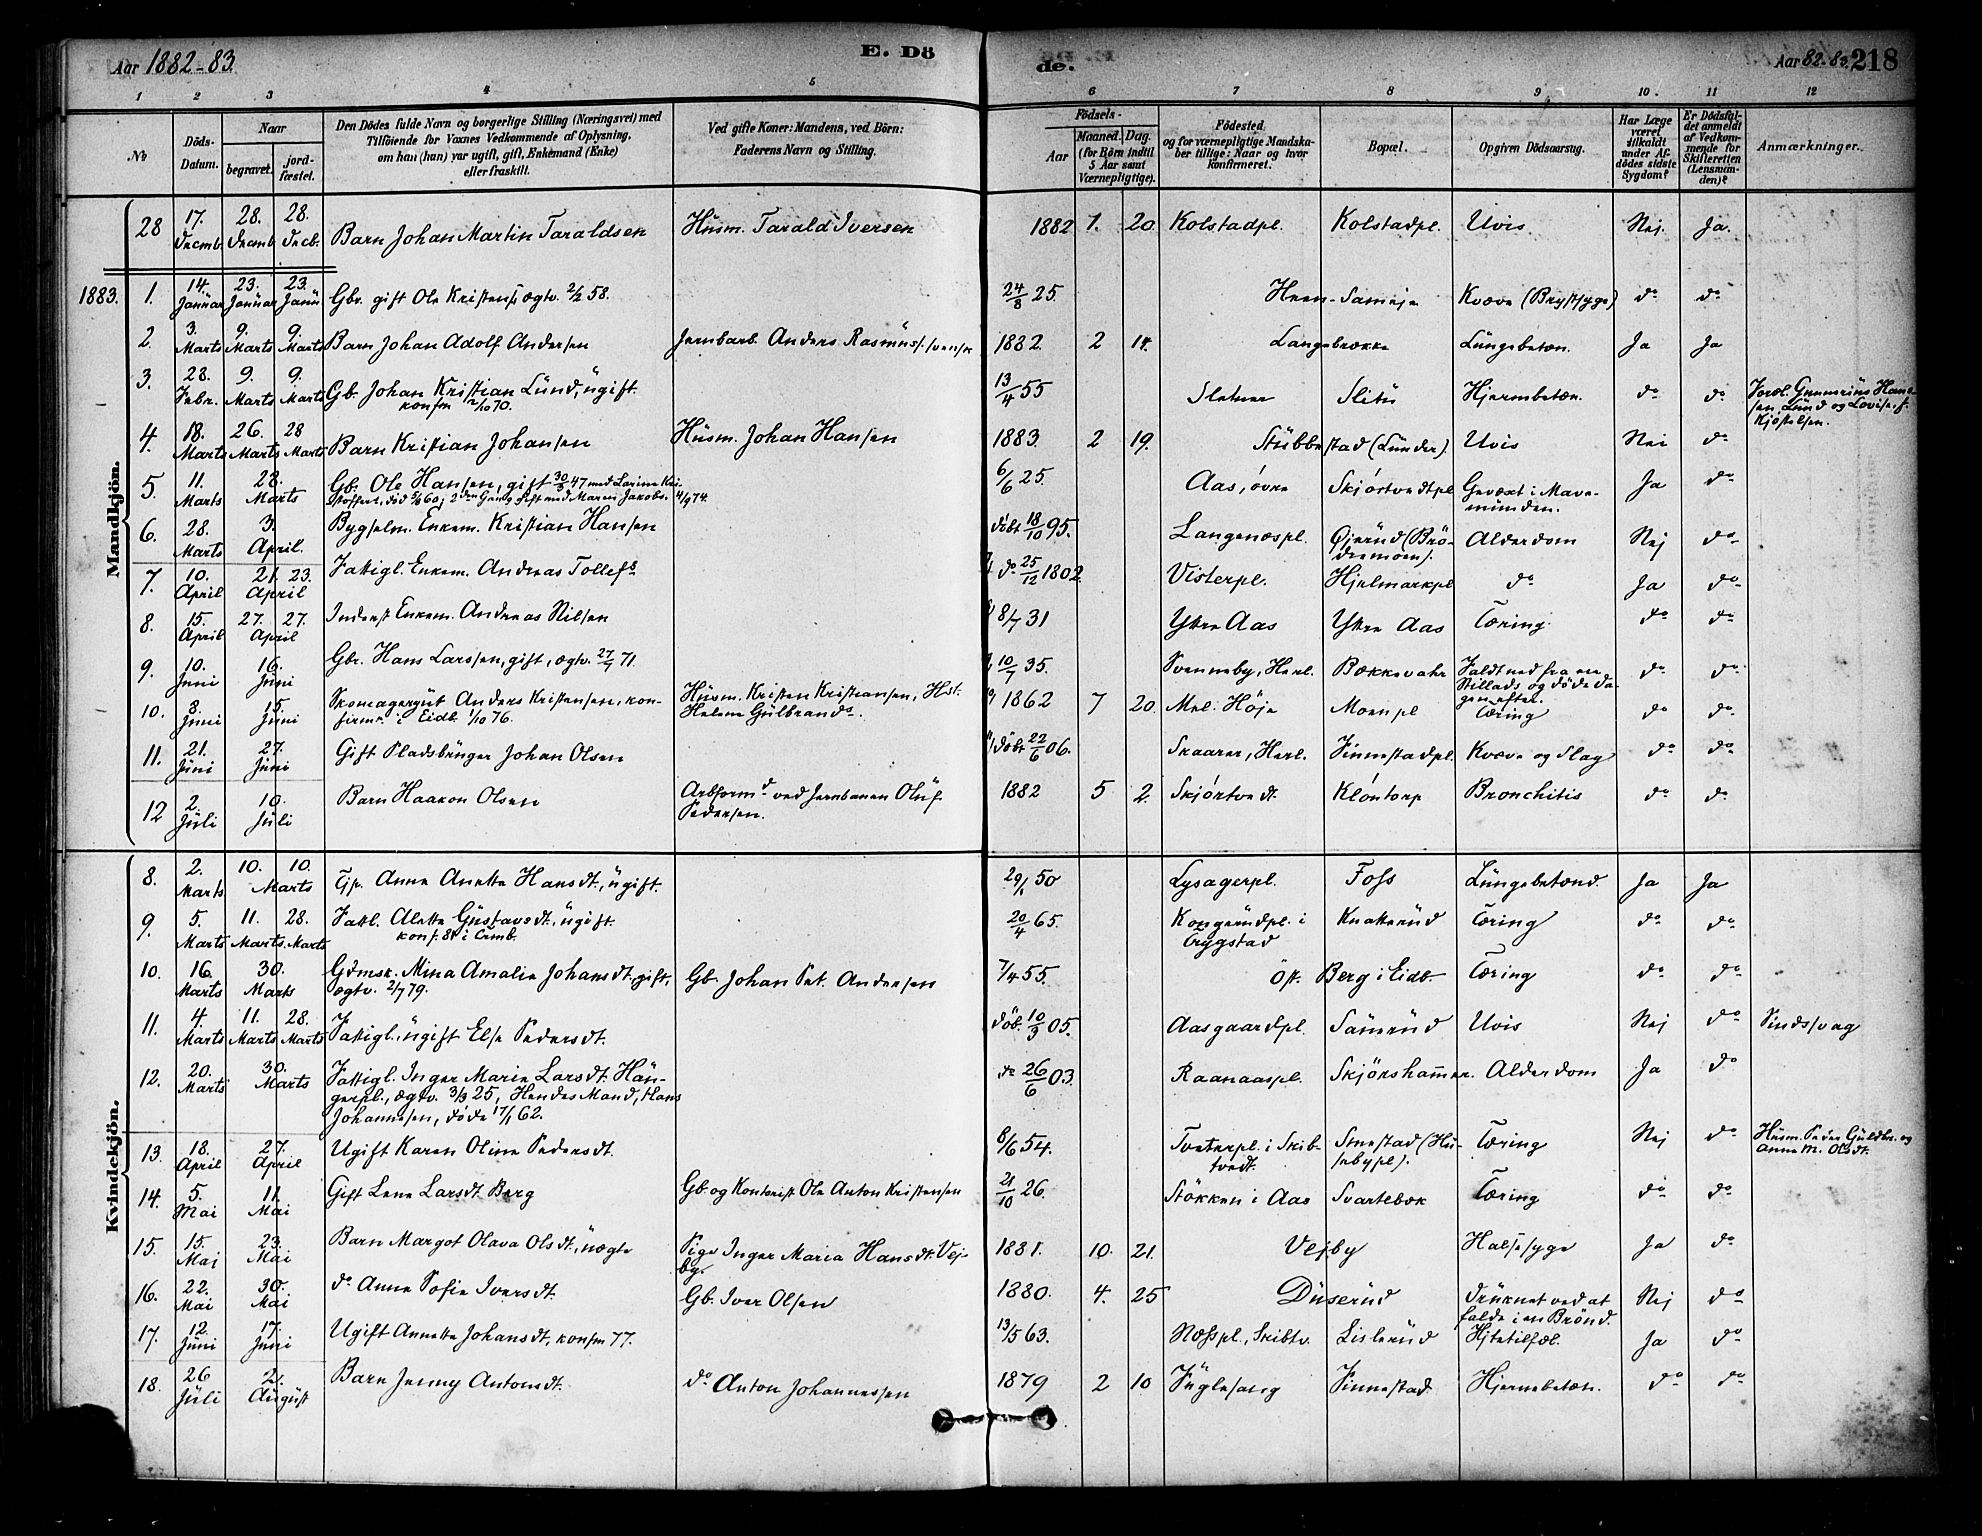 Aar 1882-83.
E. Dö
de.
Aar 82-83. 218
1 2 3 4 5 6 7 8 9 10. 11 12
No
Döds-Datum.
Naar
begravet.
jord-fæstet.
Den Dödes fulde Navn og borgerlige Stilling (Næringsvei) med
Tilföiende for Voxnes Vedkommende af Oplysning,
om han (hun) var ugift, gift, Enkemand (Enke)
eller fraskilt.
Ved gifte Koner: Mandens, ved Börn:
Faderens Navn og Stilling.
Födsels-
Aar
Maaned. Dag.
(for Börn indtil
5 Aar samt
Værnepligtige).
Födested,
og for værnepligtige Mandska-
ber tillige: Naar og hvor
konfirmeret.
Bopæl.
Opgiven Dödsaarsag.
Har Læge
været
tilkaldt
under Af-
dödes sidste
Sygdom?
Er Dödsfal-
det anmeldt
af Vedkom-
mende for
Skifteretten
(Lensman-
den)?
Anmærkninger.
Mandkjön.
28 17. Decmb. 28. Decmb 28. Decb. Barn Johan Martin Taraldsen Husm. Tarald Iversen 1882 1. 20. Kolstadpl. Kolstadpl. Uvis Nej. Ja.
1883. 1. 14. Januar 23. Januar 23. Janu Gbr. gift Ole Kristens. ægtv. 2/2 58. 24/8 25. Hven-Sameje Kræve (Brystsyge) do do
2. 3. Marts 9. Marts 9. Marts Barn Johan Adolf Andersen Jernbarb. Anders Rasmuss. svensk 1882. 2 14. Langebrække Lungebetæn. Ja Ja
3. 28. Febr. 9. Marts 9. Marts Gb. Johan Kristian Lund, ugift.
konfm 2/10 70. 13/4 55 Sletner Slitu Hjernbetæn. do do Foræl. Gunnerius Han-
sen Lund og Lovise f.
Kjöstelsen.
4. 18. Marts 26. Marts 28 Marts Barn Kristian Johansen Husm. Johan Hansen 1883. 2 19. Stubbestad (Lunder). Uvis Nei do
5. 11. Marts 28. Marts Gb. Ole Hansen, gift 30/3 47 med Larine Kri-
stoffers., död 5/8 60; 2den Gang gift med Maren Jakobs. 4/9 74. 6/6 25. Aas, övre Skjörtvedtpl Gevæxt i Mave-
munden. Ja do
6. 28. Marts 3. April. Bygselm. Enkem. Kristian Hansen döbt 18/10 95. Langenæspl. Öjerud (Brö-
dremoen). Alderdom Nej do
7. 10. April 21. 23. April Fattigl. Enkem. Andreas Tollefs. do 25/12 1802. Visterpl. Hjelmarkpl do Ja do
8. 15. April 27. 27. April Inderst Enkem. Andreas Nilsen 8/7 31 Ytre Aas Ytre Aas Tæring. do do
9. 10. Juni 16. Juni Gbr. Hans Larssen, gift, ægtv. 27/7 71. 10/7 35. Svenneby, Herl. Bækkevahr Faldt ned fra en
Stillads og döde Da-
gen efter. do do
10. 3. Juni 15. Juni Skomagergut Anders Kristensen, kon-
firmr i Eidb. 1/10 76. Husm. Kristen Kristiansen, Hst.
Helene Gulbrands. 1862 7 20. Mel. Höje Moenpl Tæring do do
11. 21. Juni 27. Juni Gift Pladsbruger Johan Olsen döbt 22/6 06. Skaarer, Herl. Finnestadpl. Kræve og Slag do do
12 2. Juli 10. Juli Barn Haakon Olsen Arbformd ved Jernbanen Oluf
Pedersen. 1882 5 2 Skjörtvedt Klöntorp Bronchitis do do
Kvindekjön.
8. 2. Marts 10. 10. Marts Tjp. Anne Anette Hansdt., ugift. 29/1 50 Lysagerpl. Foss Lungebetænd. Ja Ja
9. 5. Marts 11. Marts. 28. Marts Fattl. Alette Gustavsdt., ugift.
konf. 81 i Trömb. 20/4 65. Kongerudpl. i
Trygstad Knatterud Tæring do do
10. 16. Marts 30. Marts Gdmsk. Mina Amalie Johansdt., gift,
ægtv. 2/7 79. Gb. Johan Pet. Andersen 7/4 55. Öst. Berg i Eidb. Tæring do do
11. 4. Marts 11. Marts 28. Marts Fattigl., ugift Else Pedersdt. döb. 10/3 05. Aasgaardpl. Sämerud Uvis Nej do Sindssvag
12. 20. Marts 30. Marts Fattigl. Inger Marie Larsdt. Hun-
gerpl., ægtv. 3/3 25, Hendes Mand, Hans
Johannesen, döde 17/1 62. do 26/6 03. Raanaaspl. Skjörshammer. Alderdom Ja do
13. 18. April 27. April Ugift Karen Oline Pedersdt. 8/6 54. Tveterpl. i Skib-
tvedt. Smestad (Hu-
sebypl). Tæring Nej do Husm. Peder Guldbr. og
Anne M. Olsdt.
14. 5. Mai 11. Mai Gift Lene Larsdt. Berg Gb og Kontorist Ole Anton Kristensen 21/10 26. Stökken i Aas Svartebæk Tæring do do
15. 15. Mai 23. Mai Barn Margot Olava Olsdt., uægte Pige Inger Maria Hansdt. Vej-
by. 1881. 10. 21. Vejby Halssyge Ja do
16. 22. Mai 30. Mai do Anne Sofie Iversdt. Gb. Iver Olsen 1880. 4. 25 Duserud Druknet ved at
falde i en Brönd. Nej do
17. 12. Juni 17. Juni Ugift Annette Johansdt., konfm 77. 13/5 63. Næsspl., Skibtv. Lislerud Hjtetilfæl. Ja do
18. 26 Juli 2. August Barn Jenny Antonsdt. do Anton Johannessen 1879 2 10 Fuglesang Finnestad Hjernebetæn. do do